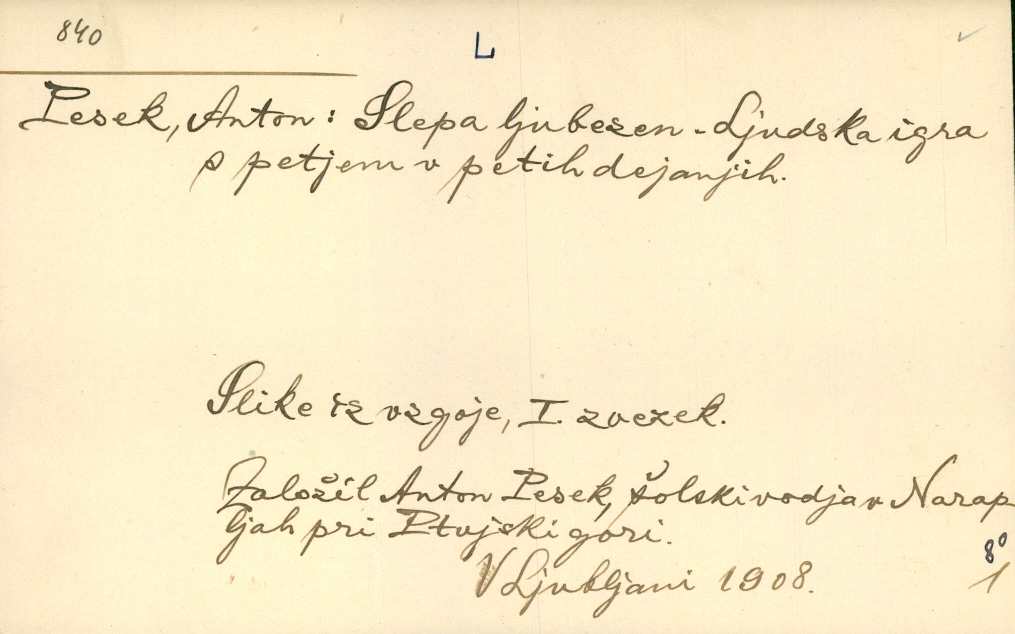 840
L
Pesek, Anton: Slepa ljubezen - Ljudska igra
s petjem v petih dejanjih.
Slike iz vzgoje, I. zvezek.
Založil Anton Pesek, šolski vodja v Narap
ljah pri Ptujski gori.
V Ljubljani 1908.
8°
1